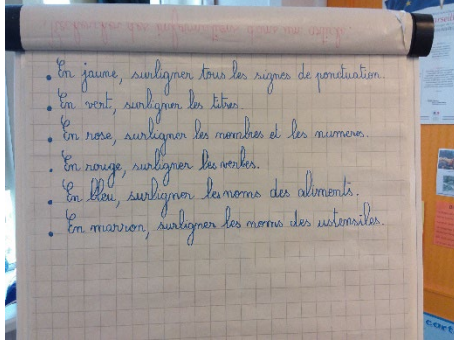 Rechercher des informations dans un article.
• En jaune, surligner tous les signes de ponctuation.
• En vert, surligner les titres.
• En rose, surligner les nombres et les numéros.
• En rouge, surligner les verbes.
• En bleu, surligner les noms des aliments.
• En marron, surligner les noms des ustensiles.